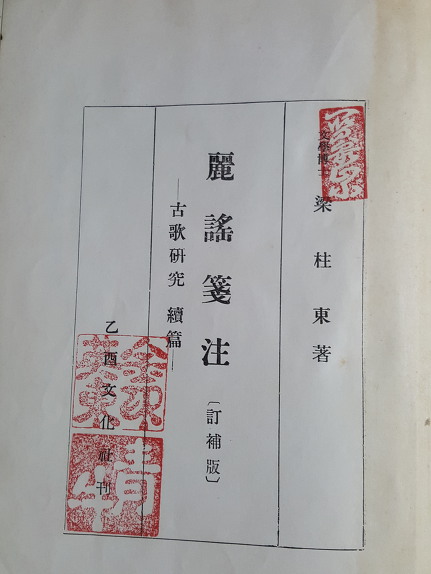 文學博士 梁柱東著
麗謠箋注〔訂補版〕
—古歌硏究 續篇—
乙酉文化社刊